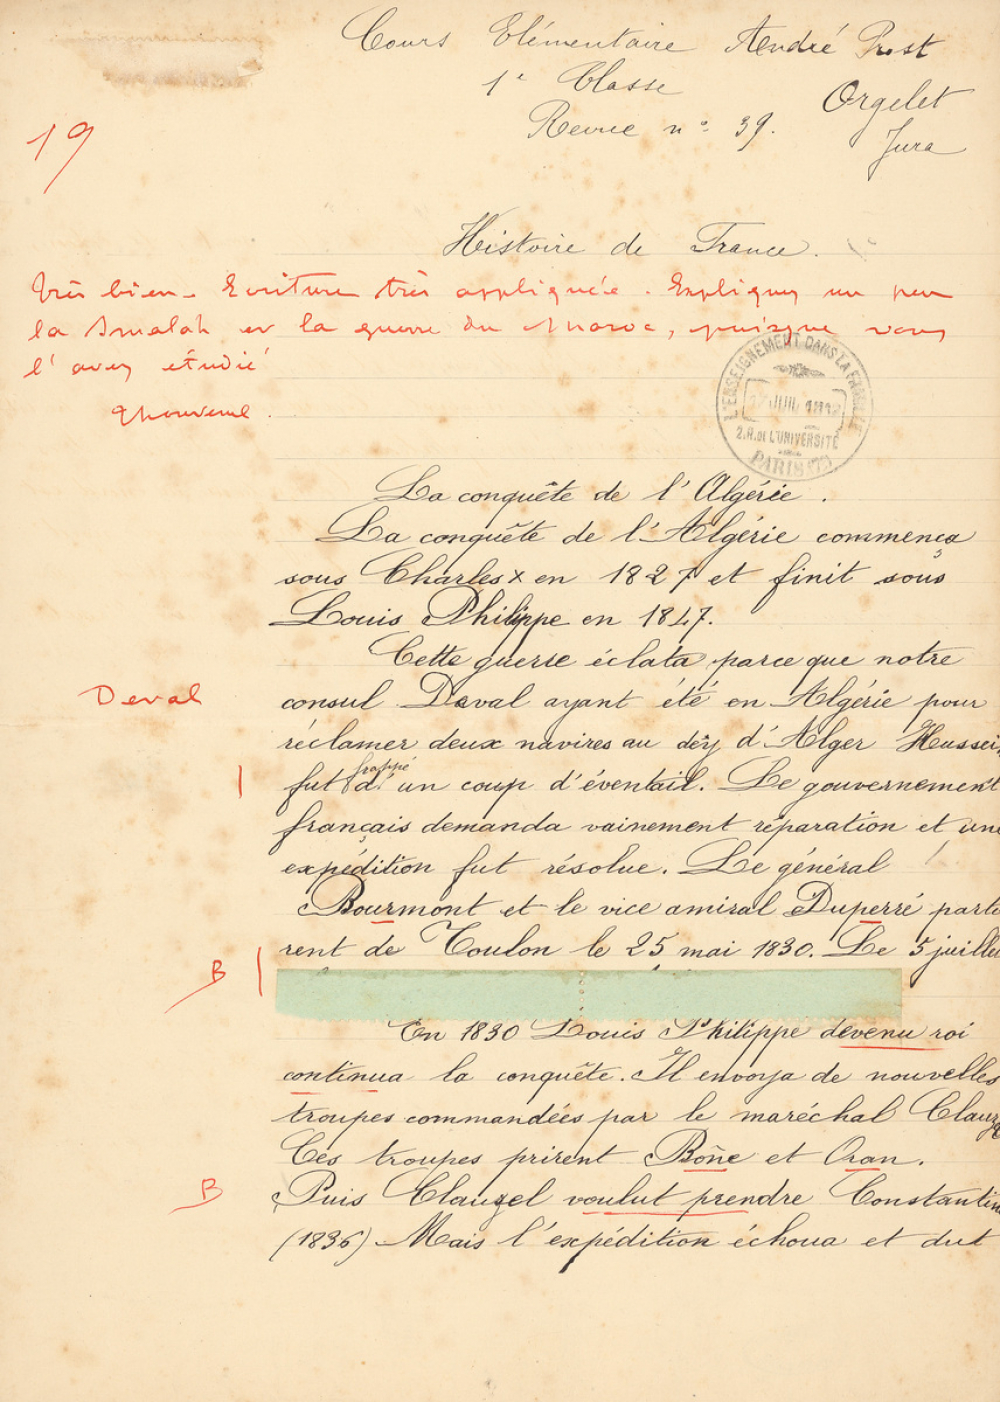 Cours Elémentaire André Prost
1e Classe Orgelet
Revue n° 39. Jura
19
Histoire de France.
Très bien - Ecriture très appliquée. Expliquez un peu
la Smalah et la guerre du Maroc, puisque vous
l'avez étudié
L'ENSEIGNEMENT DANS LA FAMILLE
JUIL
2, R. DE L'UNIVERSITÉ
PARIS
La conquête de l'Algérie.
La conquête de l'Algérie commença
sous Charles X en 1827 et finit sous
Louis Philippe en 1847.
Cette guerre éclata parce que notre
Deval
consul Deval ayant été en Algérie pour
réclamer deux navires au dey d'Alger Hussein
frappé
fut d'un coup d'éventail. Le gouvernement
français demanda vainement réparation et une
expédition fut résolue. Le général
Bourmont et le vice amiral Duperré parti
rent de Toulon le 25 mai 1830. Le 5 juillet
B
En 1830 Louis Philippe devenu roi
continua la conquête. Il envoya de nouvelles
troupes commandées par le maréchal Clauze
Ces troupes prirent Bône et Oran.
B
Puis Clauzel voulut prendre Constantin
(1836) Mais l'expédition échoua et dut